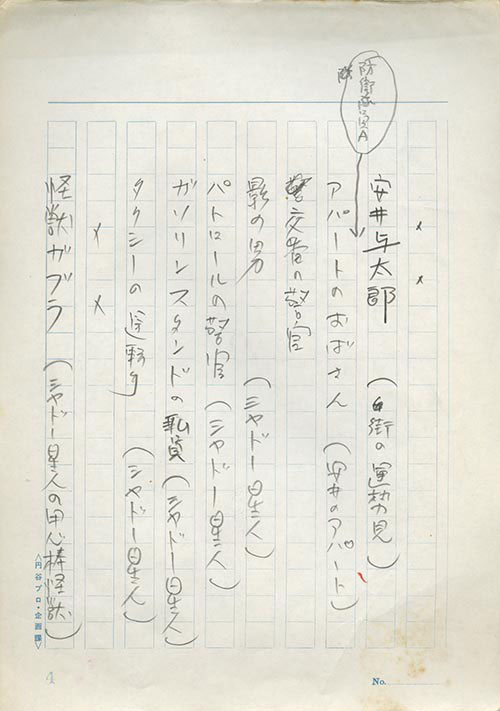 防衛隊員A
× ×
安井与太郎 (街の運勢見)
アパートのおばさん (安井のアパート)
交番の警官
影の男 (シャドー星人)
パトロールの警官 (シャドー星人)
ガソリンスタンドの私貨 (シャドー星人)
タクシーの運転手 (シャドー星人)
× ×
怪獣ガブラ (シャドー星人の用心棒怪獣)
<円谷プロ・企画課>
4
No.